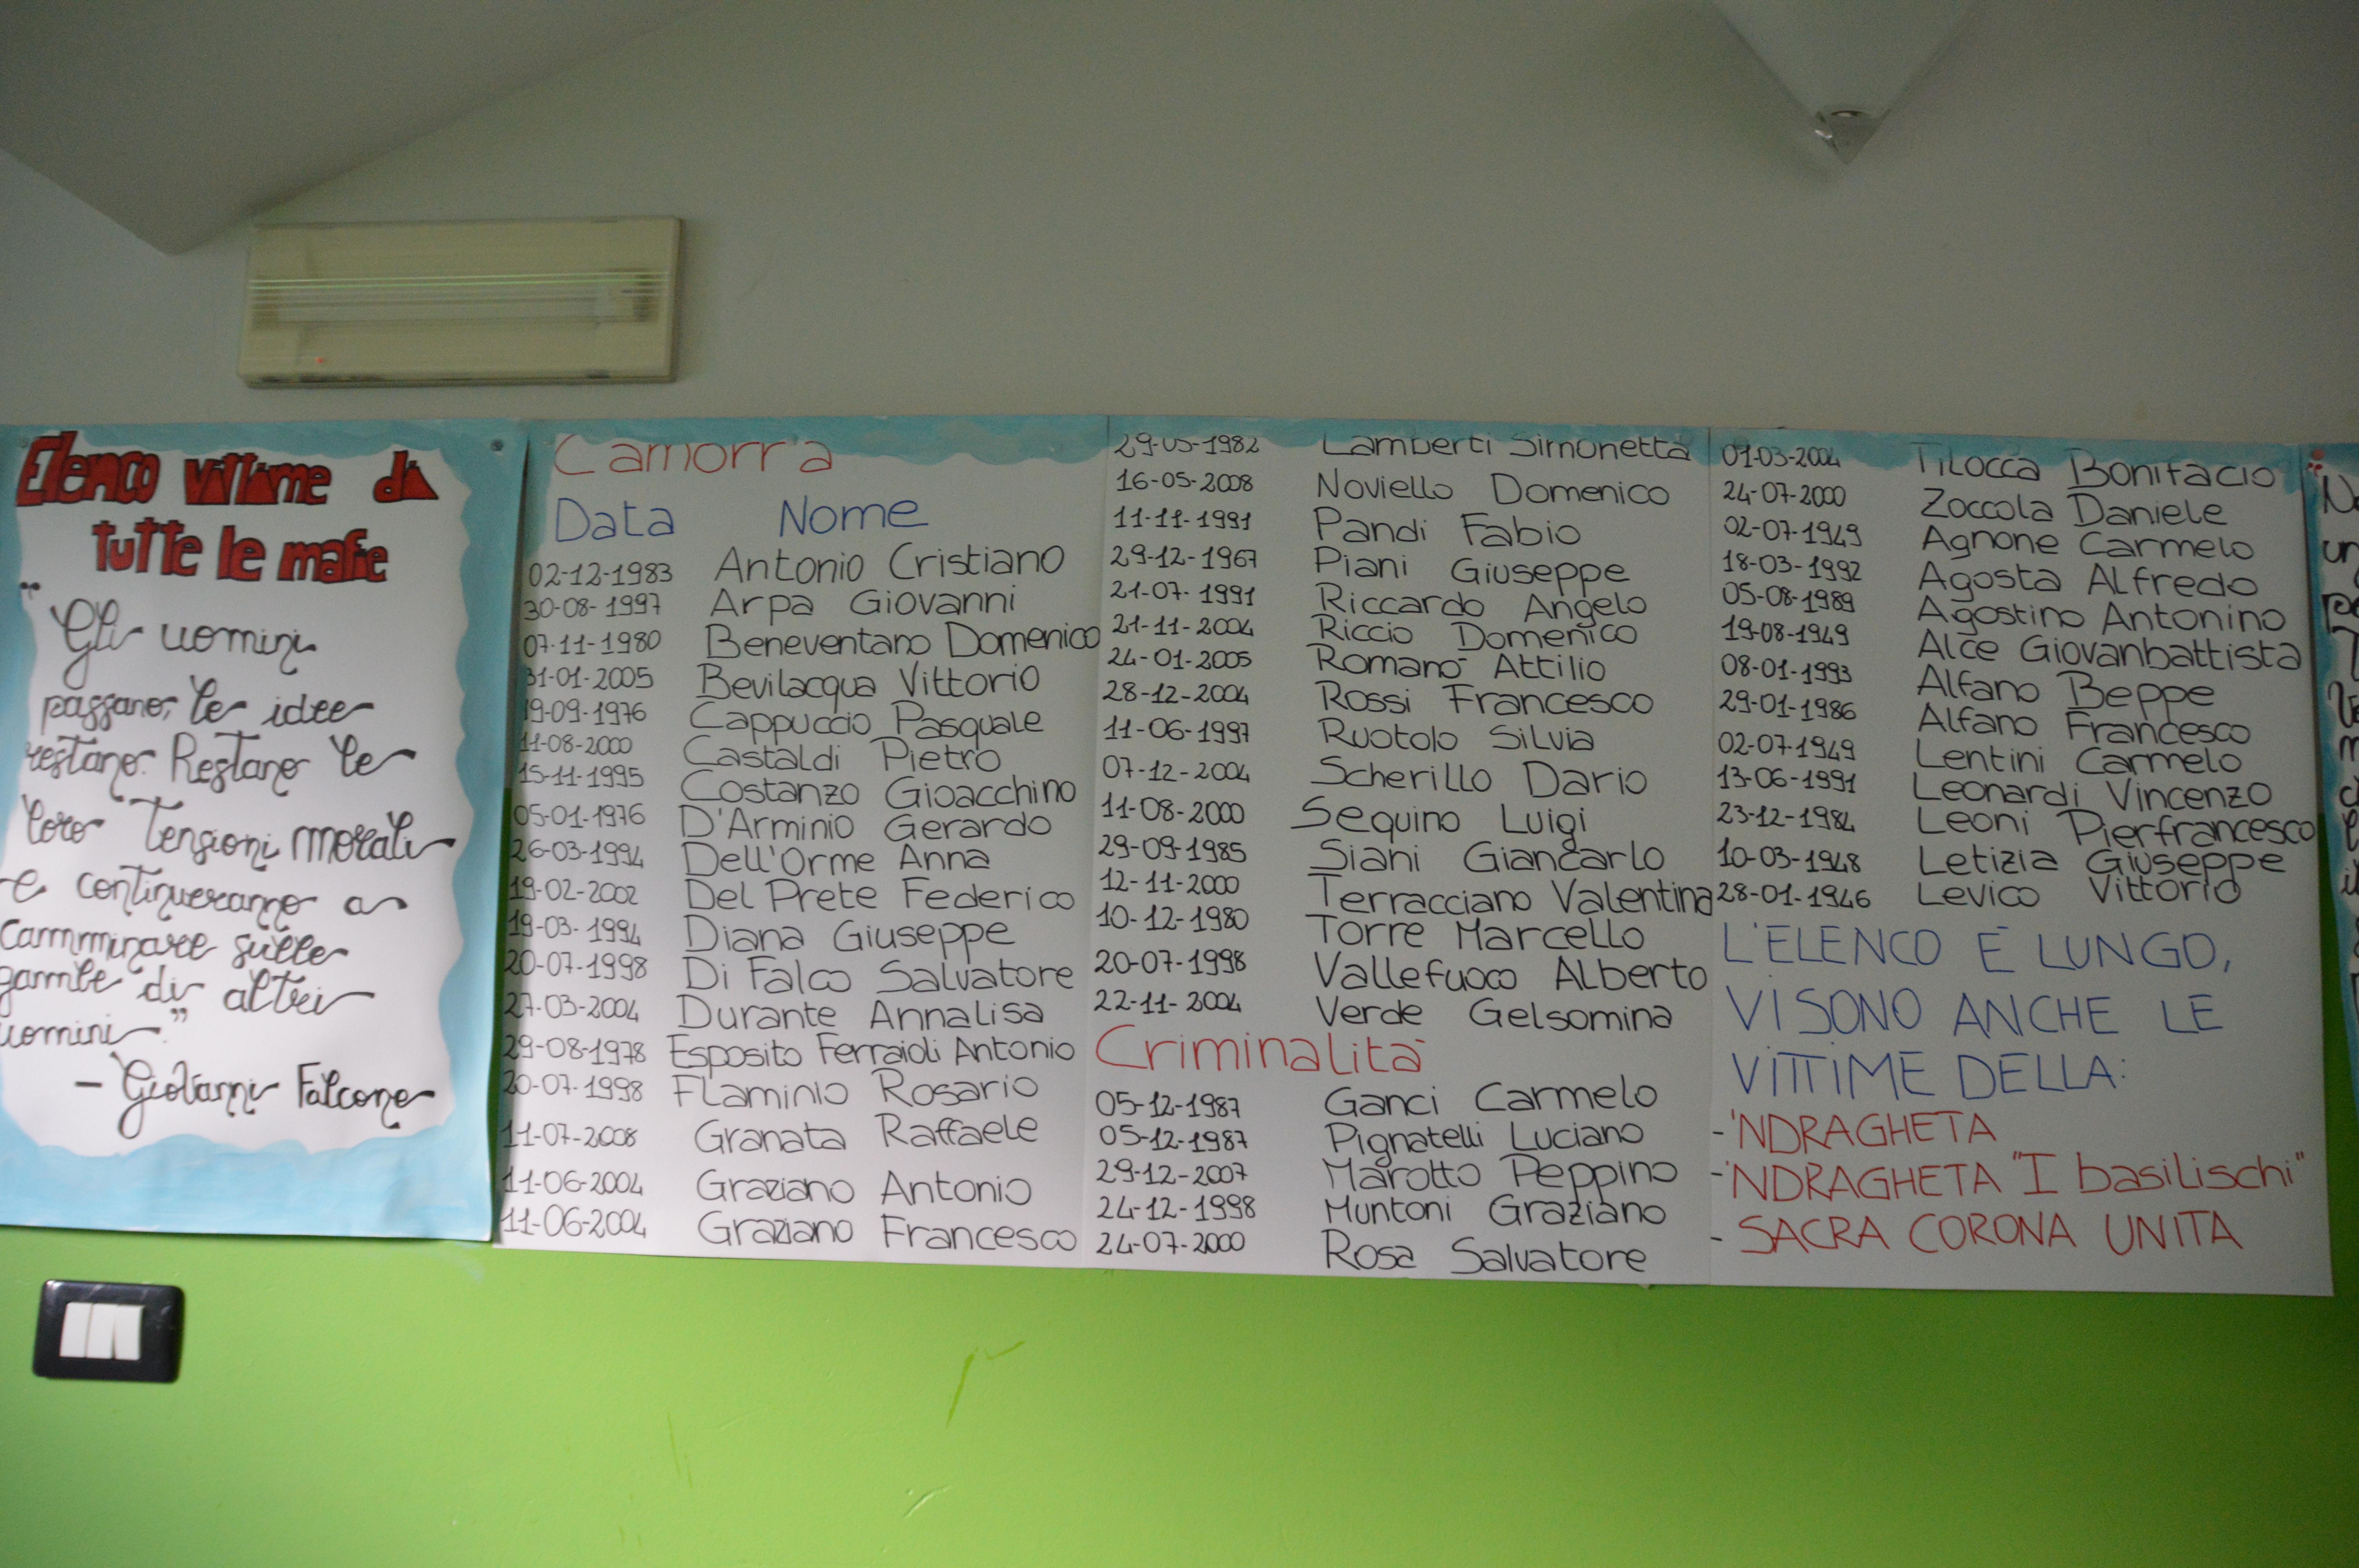 Elenco vittime di
tutte le mafie
"Gli uomini
passano, le idee
restano. Restano le
loro tensioni morali
e continueranno a
camminare sulle
gambe di altri
uomini."
- Giovanni Falcone
Camorra
Data Nome
02-12-1983 Antonio Cristiano
30-08-1997 Arpa Giovanni
07-11-1980 Beneventano Domenico
31-01-2005 Bevilacqua Vittorio
19-09-1976 Cappuccio Pasquale
11-08-2000 Castaldi Pietro
15-11-1995 Costanzo Gioacchino
05-01-1976 D'Arminio Gerardo
26-03-1994 Dell'Orme Anna
19-02-2002 Del Prete Federico
19-03-1994 Diana Giuseppe
20-07-1998 Di Falco Salvatore
27-03-2004 Durante Annalisa
29-08-1978 Esposito Ferraioli Antonio
20-07-1998 Flaminio Rosario
11-07-2008 Granata Raffaele
11-06-2004 Graziano Antonio
11-06-2004 Graziano Francesco
29-05-1982 Lamberti Simonetta
16-05-2008 Noviello Domenico
11-11-1991 Pandi Fabio
29-12-1967 Piani Giuseppe
21-07-1991 Riccardo Angelo
21-11-2004 Riccio Domenico
24-01-2005 Romanò Attilio
28-12-2004 Rossi Francesco
11-06-1997 Ruotolo Silvia
07-12-2004 Scherillo Dario
11-08-2000 Sequino Luigi
29-09-1985 Siani Giancarlo
12-11-2000 Terracciano Valentina
10-12-1980 Torre Marcello
20-07-1998 Vallefuoco Alberto
22-11-2004 Verde Gelsomina
Criminalità
05-12-1987 Ganci Carmelo
05-12-1987 Pignatelli Luciano
29-12-2007 Marotto Peppino
24-12-1998 Muntoni Graziano
24-07-2000 Rosa Salvatore
01-03-2004 Tilocca Bonifacio
24-07-2000 Zoccola Daniele
02-07-1949 Agnone Carmelo
18-03-1992 Agosta Alfredo
05-08-1989 Agostino Antonino
19-08-1949 Alce Giovanbattista
08-01-1993 Alfano Beppe
29-01-1986 Alfano Francesco
02-07-1949 Lentini Carmelo
13-06-1991 Leonardi Vincenzo
23-12-1984 Leoni Pierfrancesco
10-03-1948 Letizia Giuseppe
28-01-1946 Levico Vittorio
L'ELENCO È LUNGO,
VI SONO ANCHE LE
VITTIME DELLA:
-'NDRAGHETA
-'NDRAGHETA "I basilischi"
- SACRA CORONA UNITA